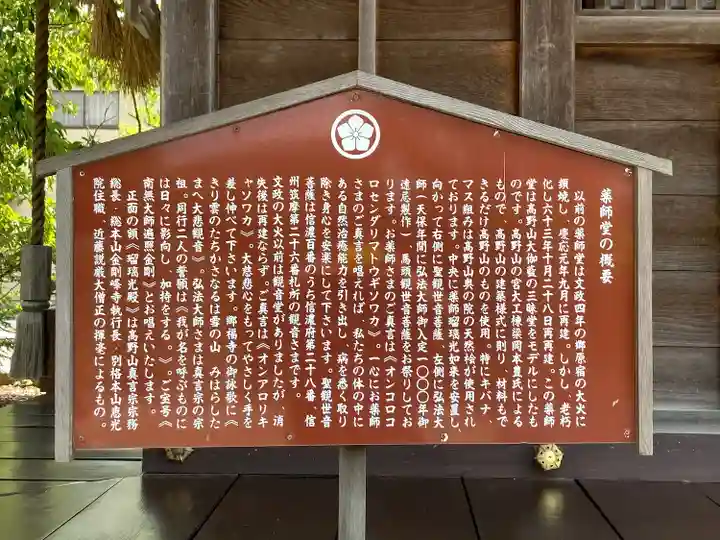 薬師堂の概要
以前の薬師堂は文政四年の郷原宿の大火に
類焼し、慶応元年九月に再建。しかし、老朽
化し六十三年十月二十八日再再建。この薬師
堂は高野山大伽藍の三昧堂をモデルにしたも
のです。高野山の宮大工棟梁岡本豊氏による
もので、高野山の建築様式に則り、材料もで
きるだけ高野山のものを使用。特にキバナ、
マス組みは高野山奥の院の天然桧が使用され
ております。中央に薬師瑠璃光如来を安置し、
向かって右側に聖観世音菩薩、左側に弘法大
師（天保年間に弘法大師御入定一〇〇〇年御
遠忌製作）、馬頭観世音菩薩をお祭りしてお
ります。お薬師さまのご真言は《オンコロコ
ロセンダリマトウギソワカ》。一心にお薬師
さまのご真言を唱えれば、私たちの体の中に
ある自然治癒能力を引き出し、病を悉く取り
除き身心を安楽にして下さいます。聖観世音
菩薩は信濃百番のうち信濃府第二十八番、信
州筑摩第二十六番札所の観音さまです。
文政の大火以前は観音堂がありましたが、消
失後は再建ならず。ご真言は《オンアロリキ
ャソワカ》。大慈悲心をもってやさしく手を
差し伸べて下さいます。郷福寺の御詠歌に《
きり雲のたちかさなるは雲の山 みはらした
まへ大悲観音》。弘法大師さまは真言宗の宗
祖。同行二人の誓願は《我が名を呼ぶものに
は日々に影向し、加持をする。》。ご宝号《
南無大師遍照金剛》とお唱えいたします。
正面の額《瑠璃光殿》は高野山真言宗宗務
総長、総本山金剛峯寺執行長、別格本山恵光
院住職、近藤説巌大僧正の揮毫によるもの。